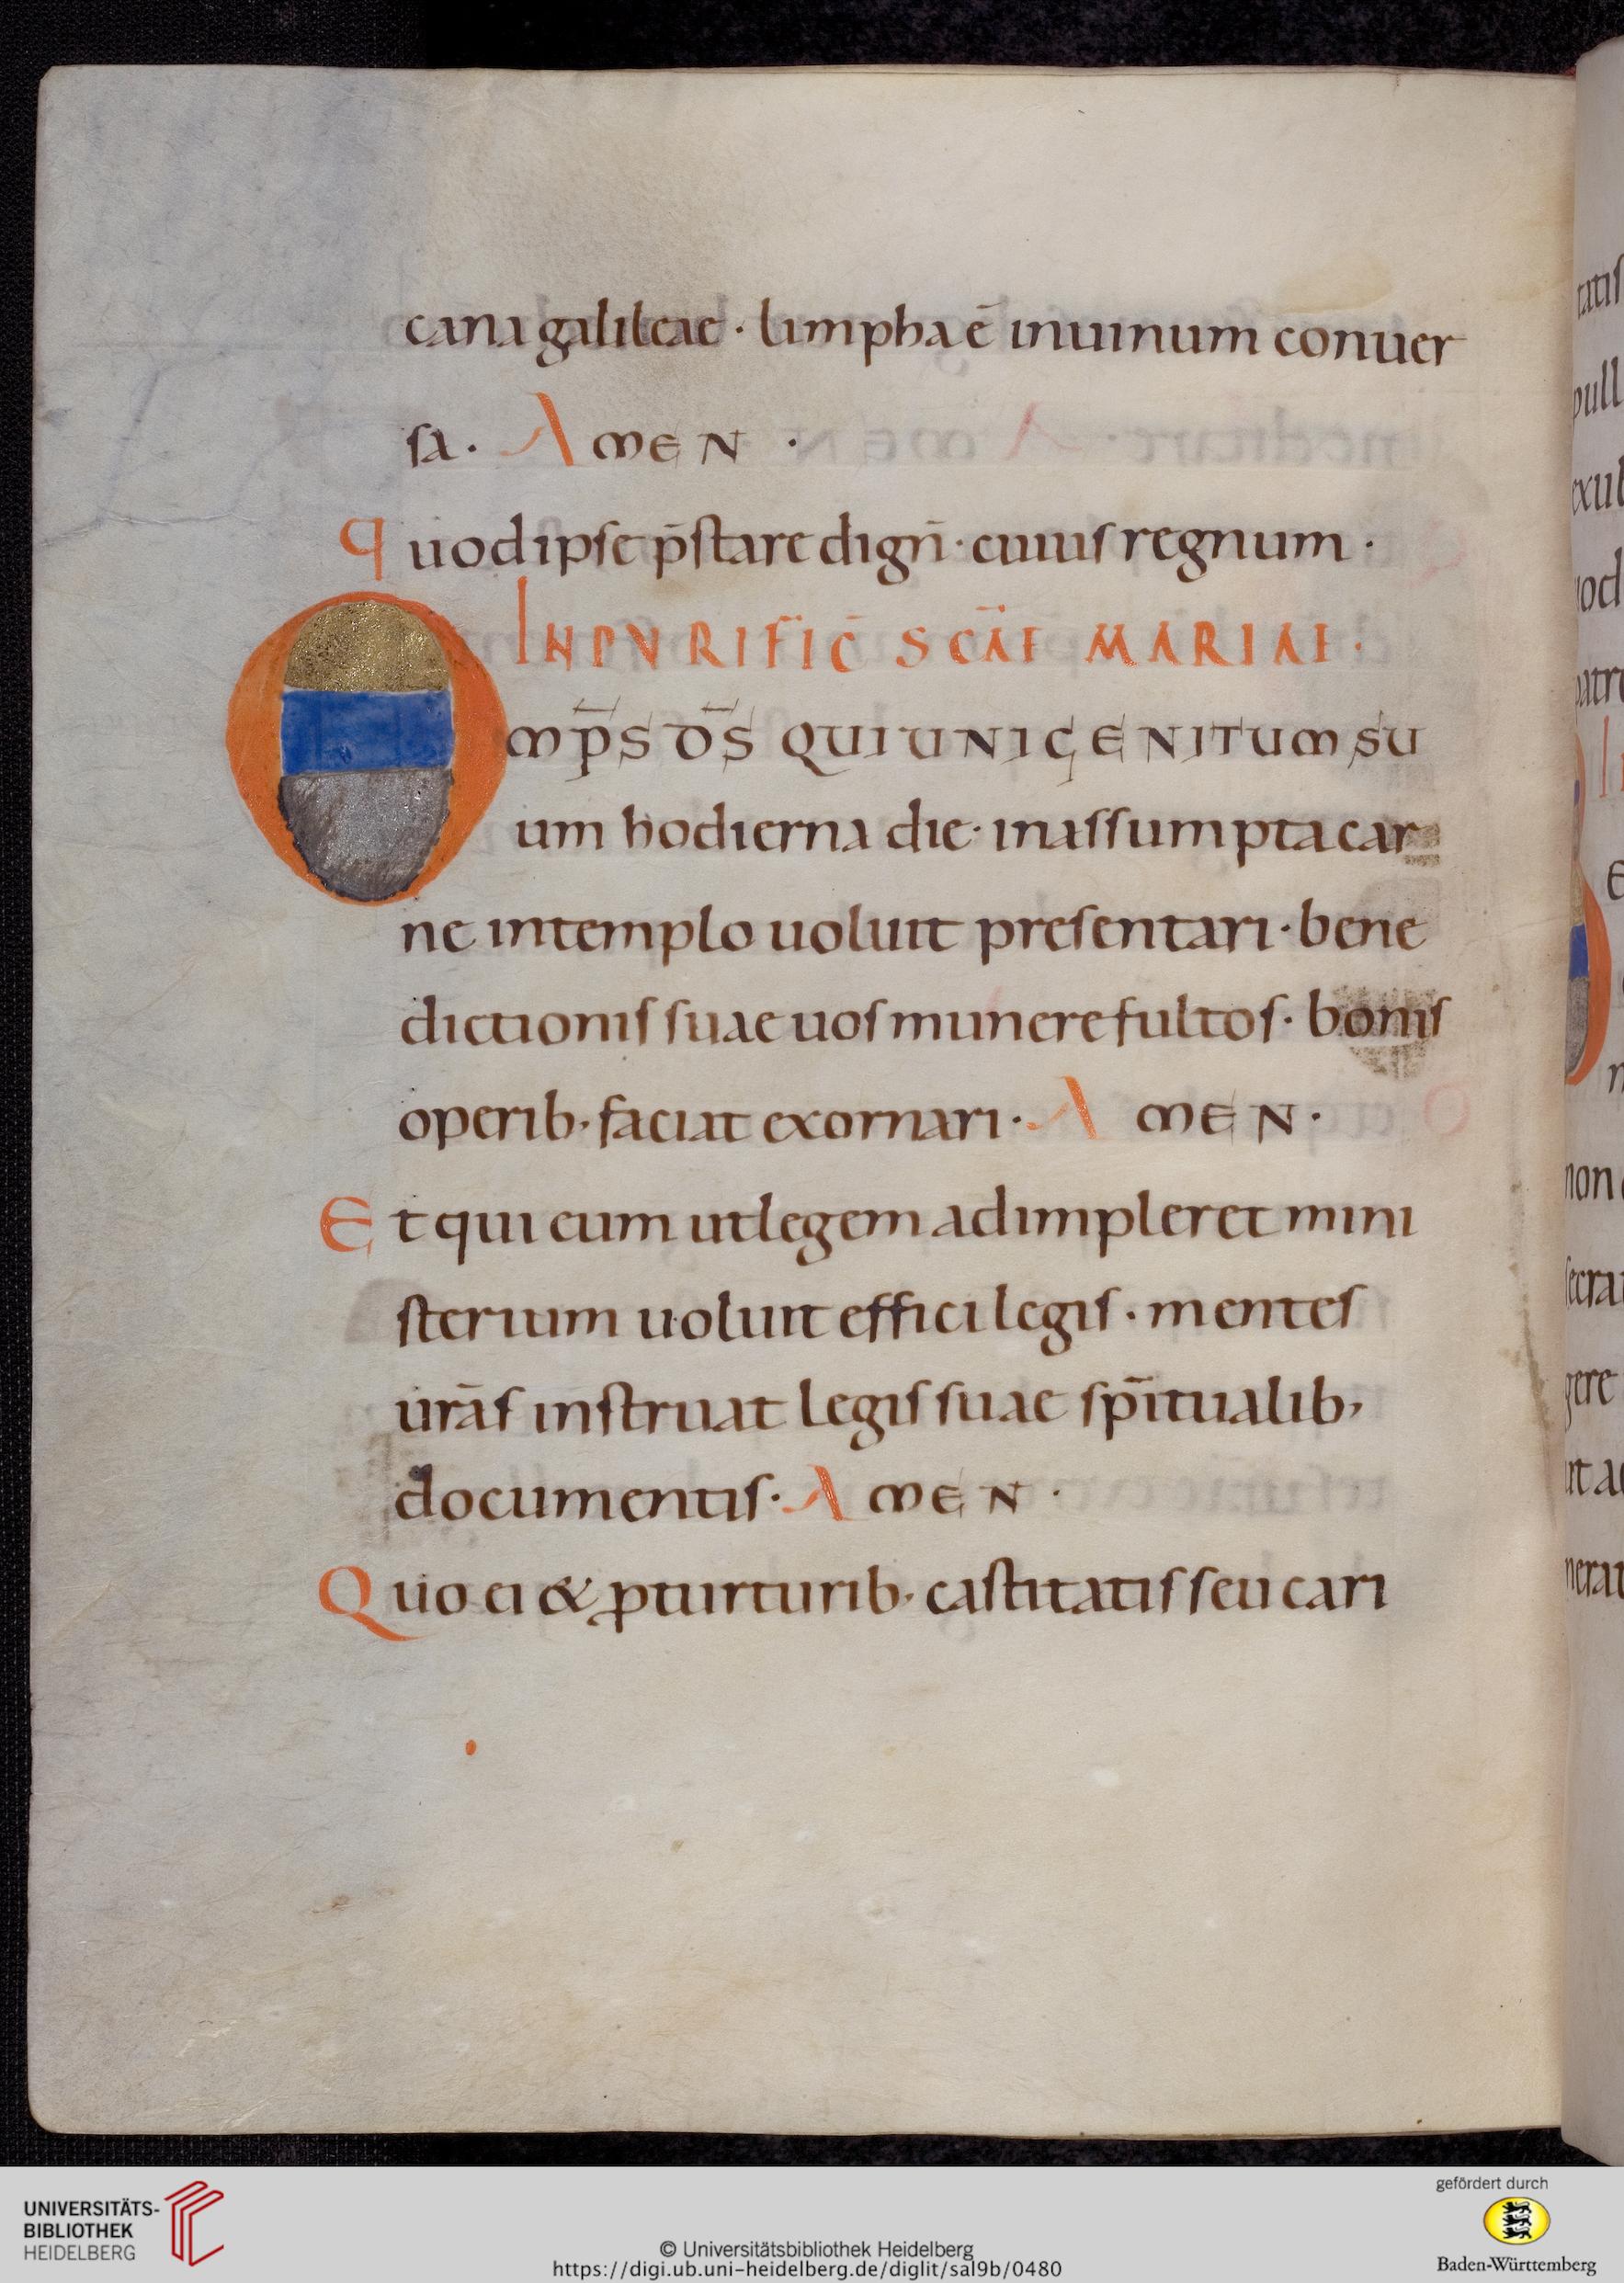 cana galileae · limpha ē in uinum conuer
sa · AMEN ·
quod ipse p̄stare dign̄ · cuius regnum ·
IN PVRIFIC̄ SC̄AE MARIAE ·
OMP̄S D̄S QUI UNIGENITUM SU
um hodierna die · in assumpta car
ne in templo uoluit presentari · bene
dictionis suae uos munere fultos · bonis
operib· faciat exornari · AMEN ·
Et qui eum ut legem adimpleret mini
sterium uoluit effici legis · mentes
ur̄as instruat legis suae sp̄itualib,
documentis · AMEN ·
Quo ei & ꝑ turturib· castitatis seu cari
tatis
pull
UNIVERSITÄTS-
BIBLIOTHEK
HEIDELBERG
© Universitätsbibliothek Heidelberg
https://digi.ub.uni-heidelberg.de/diglit/sal9b/0480
gefördert durch
Baden-Württemberg